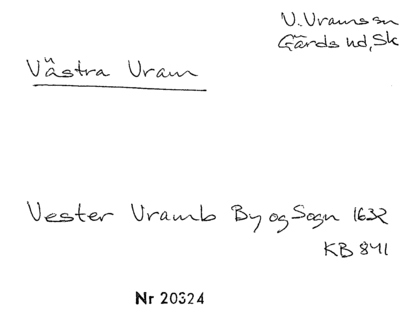 V. Vrams sn
Gärds hd, Sk
Västra Vram
Vester Vramb By og Sogn 1632
KB 841
Nr 20324